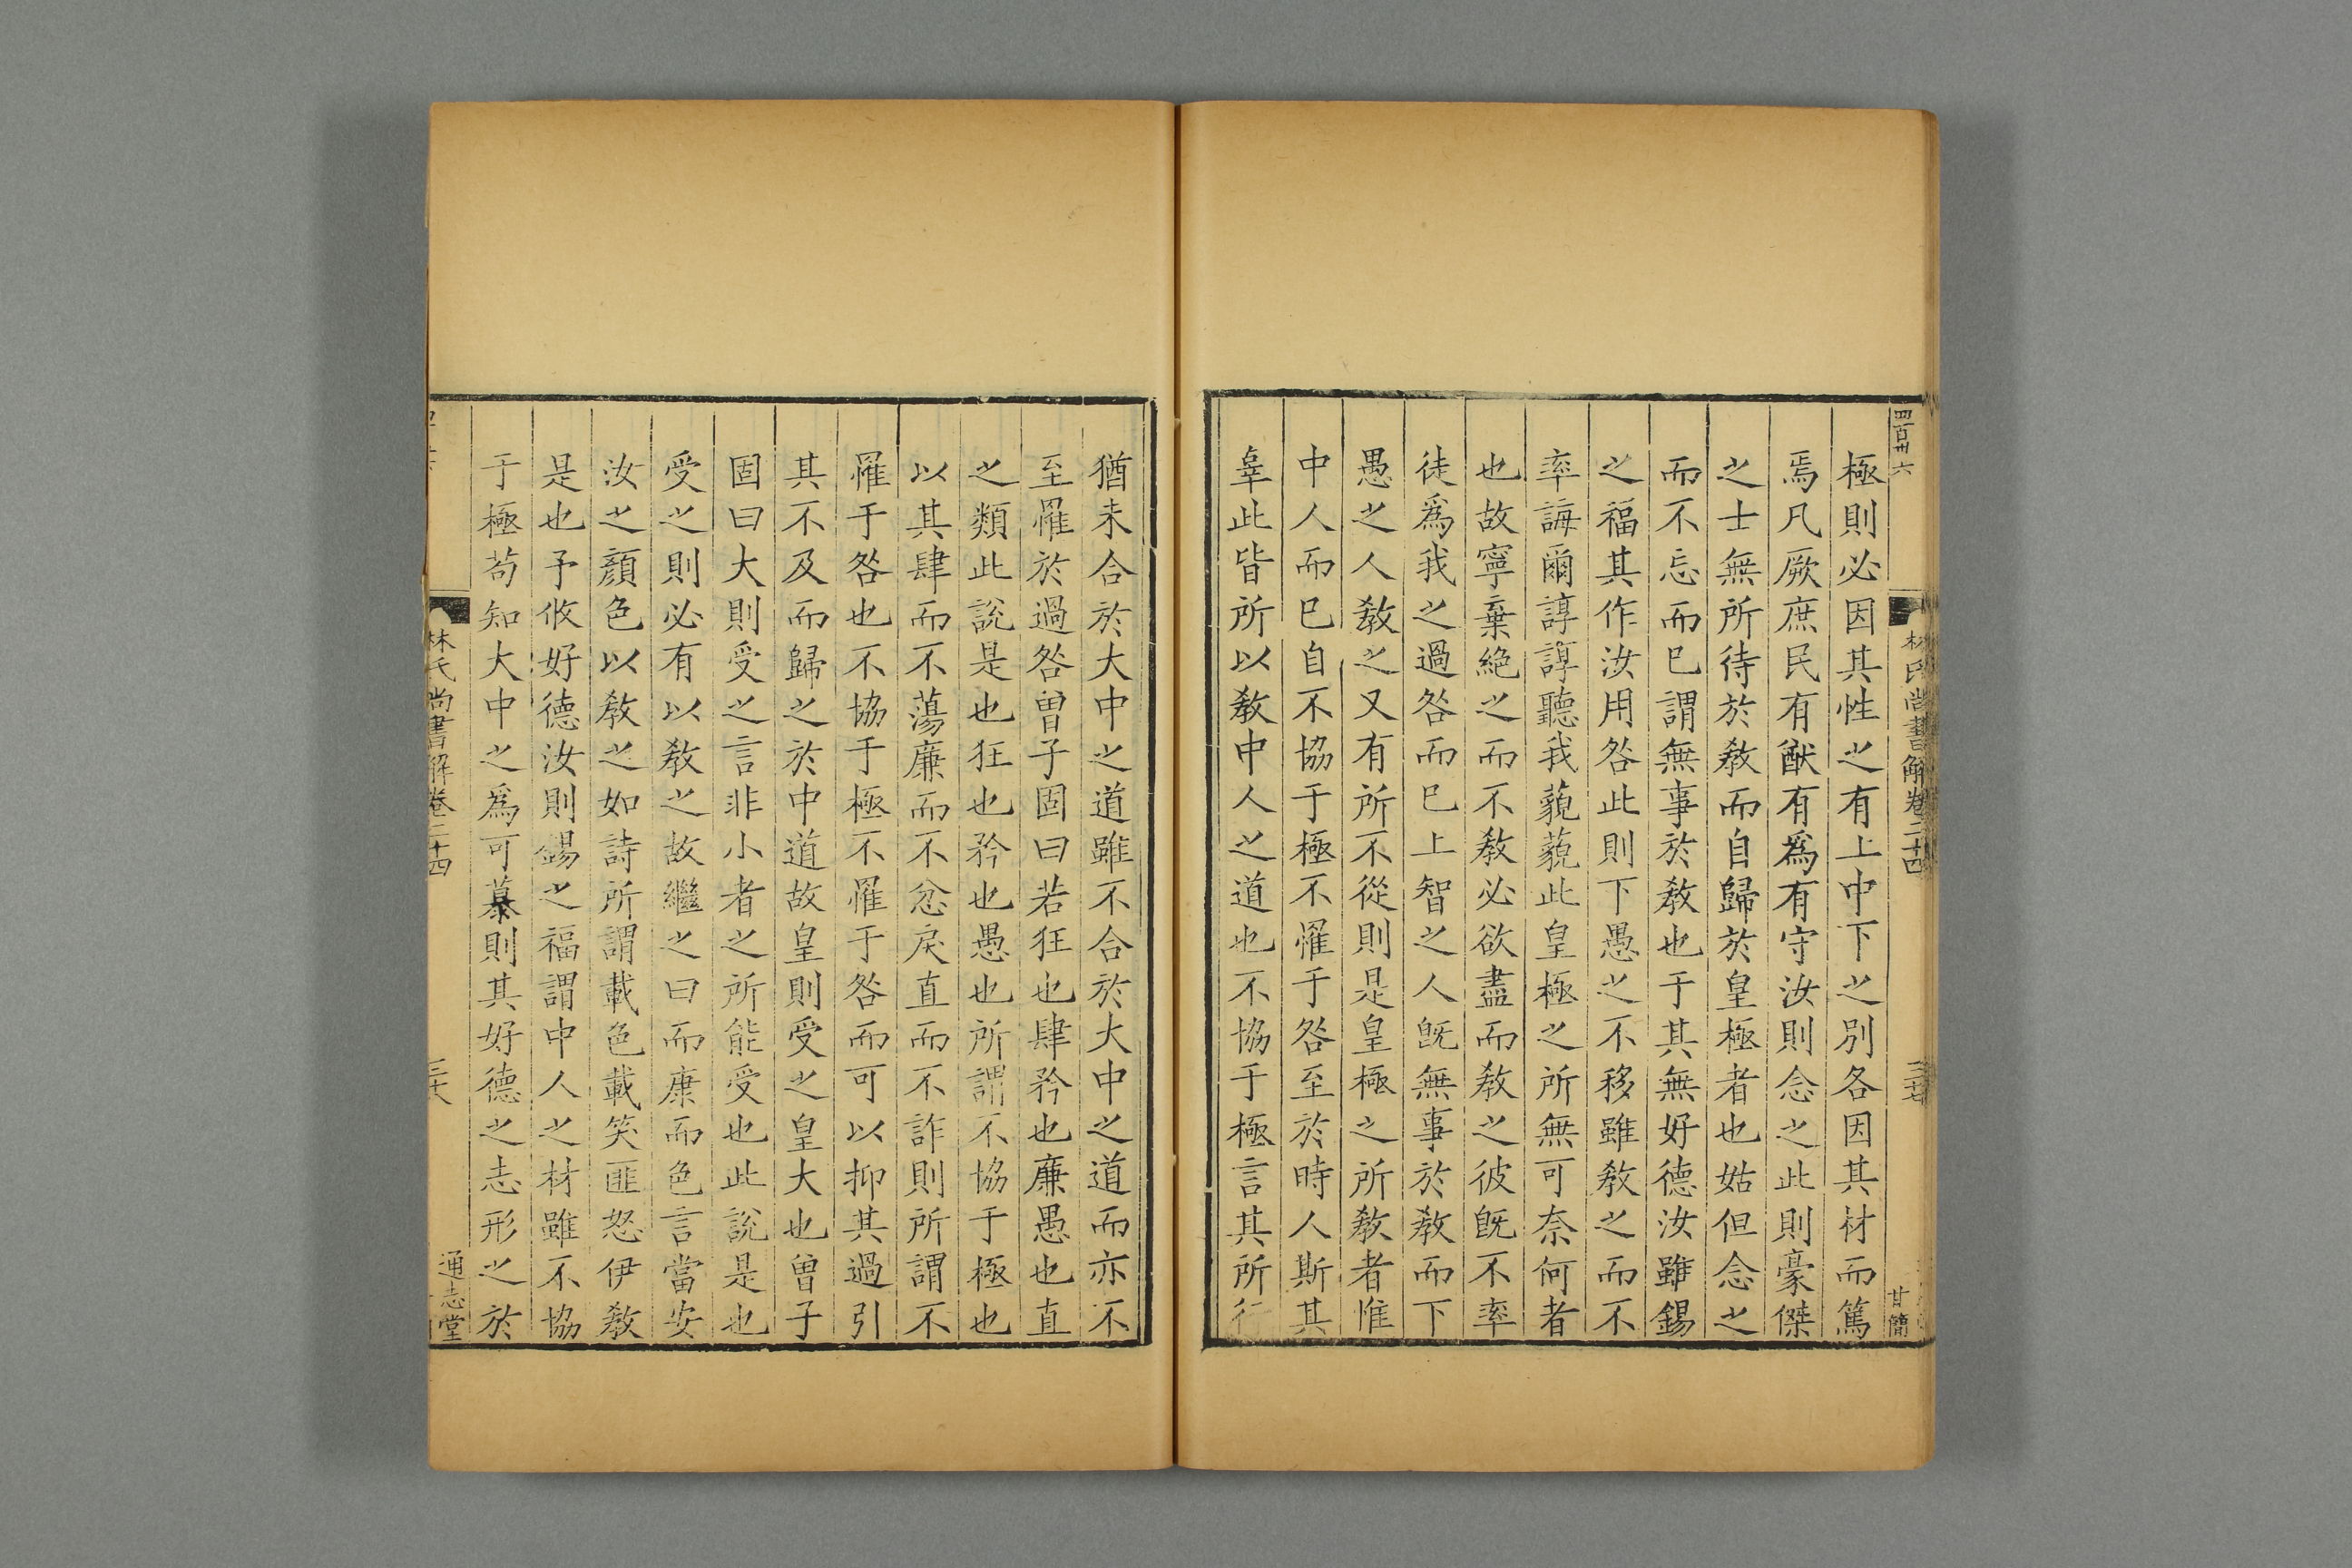 四百卅六
林氏尚書解卷二十四
甘簡
極則必因其性之有上中下之別各因其材而篤
焉凡厥庶民有猷有爲有守汝則念之此則豪傑
之士無所待於敎而自歸於皇極者也姑但念之
而不忘而巳謂無事於敎也于其無好德汝雖錫
之福其作汝用咎此則下愚之不移雖敎之而不
率誨爾諄諄聽我藐藐此皇極之所無可奈何者
也故寧棄絕之而不敎必欲盡而敎之彼旣不率
徒爲我之過咎而巳上智之人旣無事於敎而下
愚之人敎之又有所不從則是皇極之所敎者惟
中人而巳自不協于極不罹于咎至於時人斯其
辜此皆所以敎中人之道也不協于極言其所行
猶未合於大中之道雖不合於大中之道而亦不
至罹於過咎曾子固曰若狂也肆矜也廉愚也直
之類此說是也狂也矜也愚也所謂不協于極也
以其肆而不蕩廉而不忿戾直而不詐則所謂不
罹于咎也不協于極不罹于咎而可以抑其過引
其不及而歸之於中道故皇則受之皇大也曾子
固曰大則受之言非小者之所能受也此說是也
受之則必有以敎之故繼之曰而康而色言當安
汝之顏色以敎之如詩所謂載色載笑匪怒伊敎
是也予攸好德汝則錫之福謂中人之材雖不協
于極苟知大中之爲可慕則其好德之志形之於
林氏尚書解卷二十四
通志堂